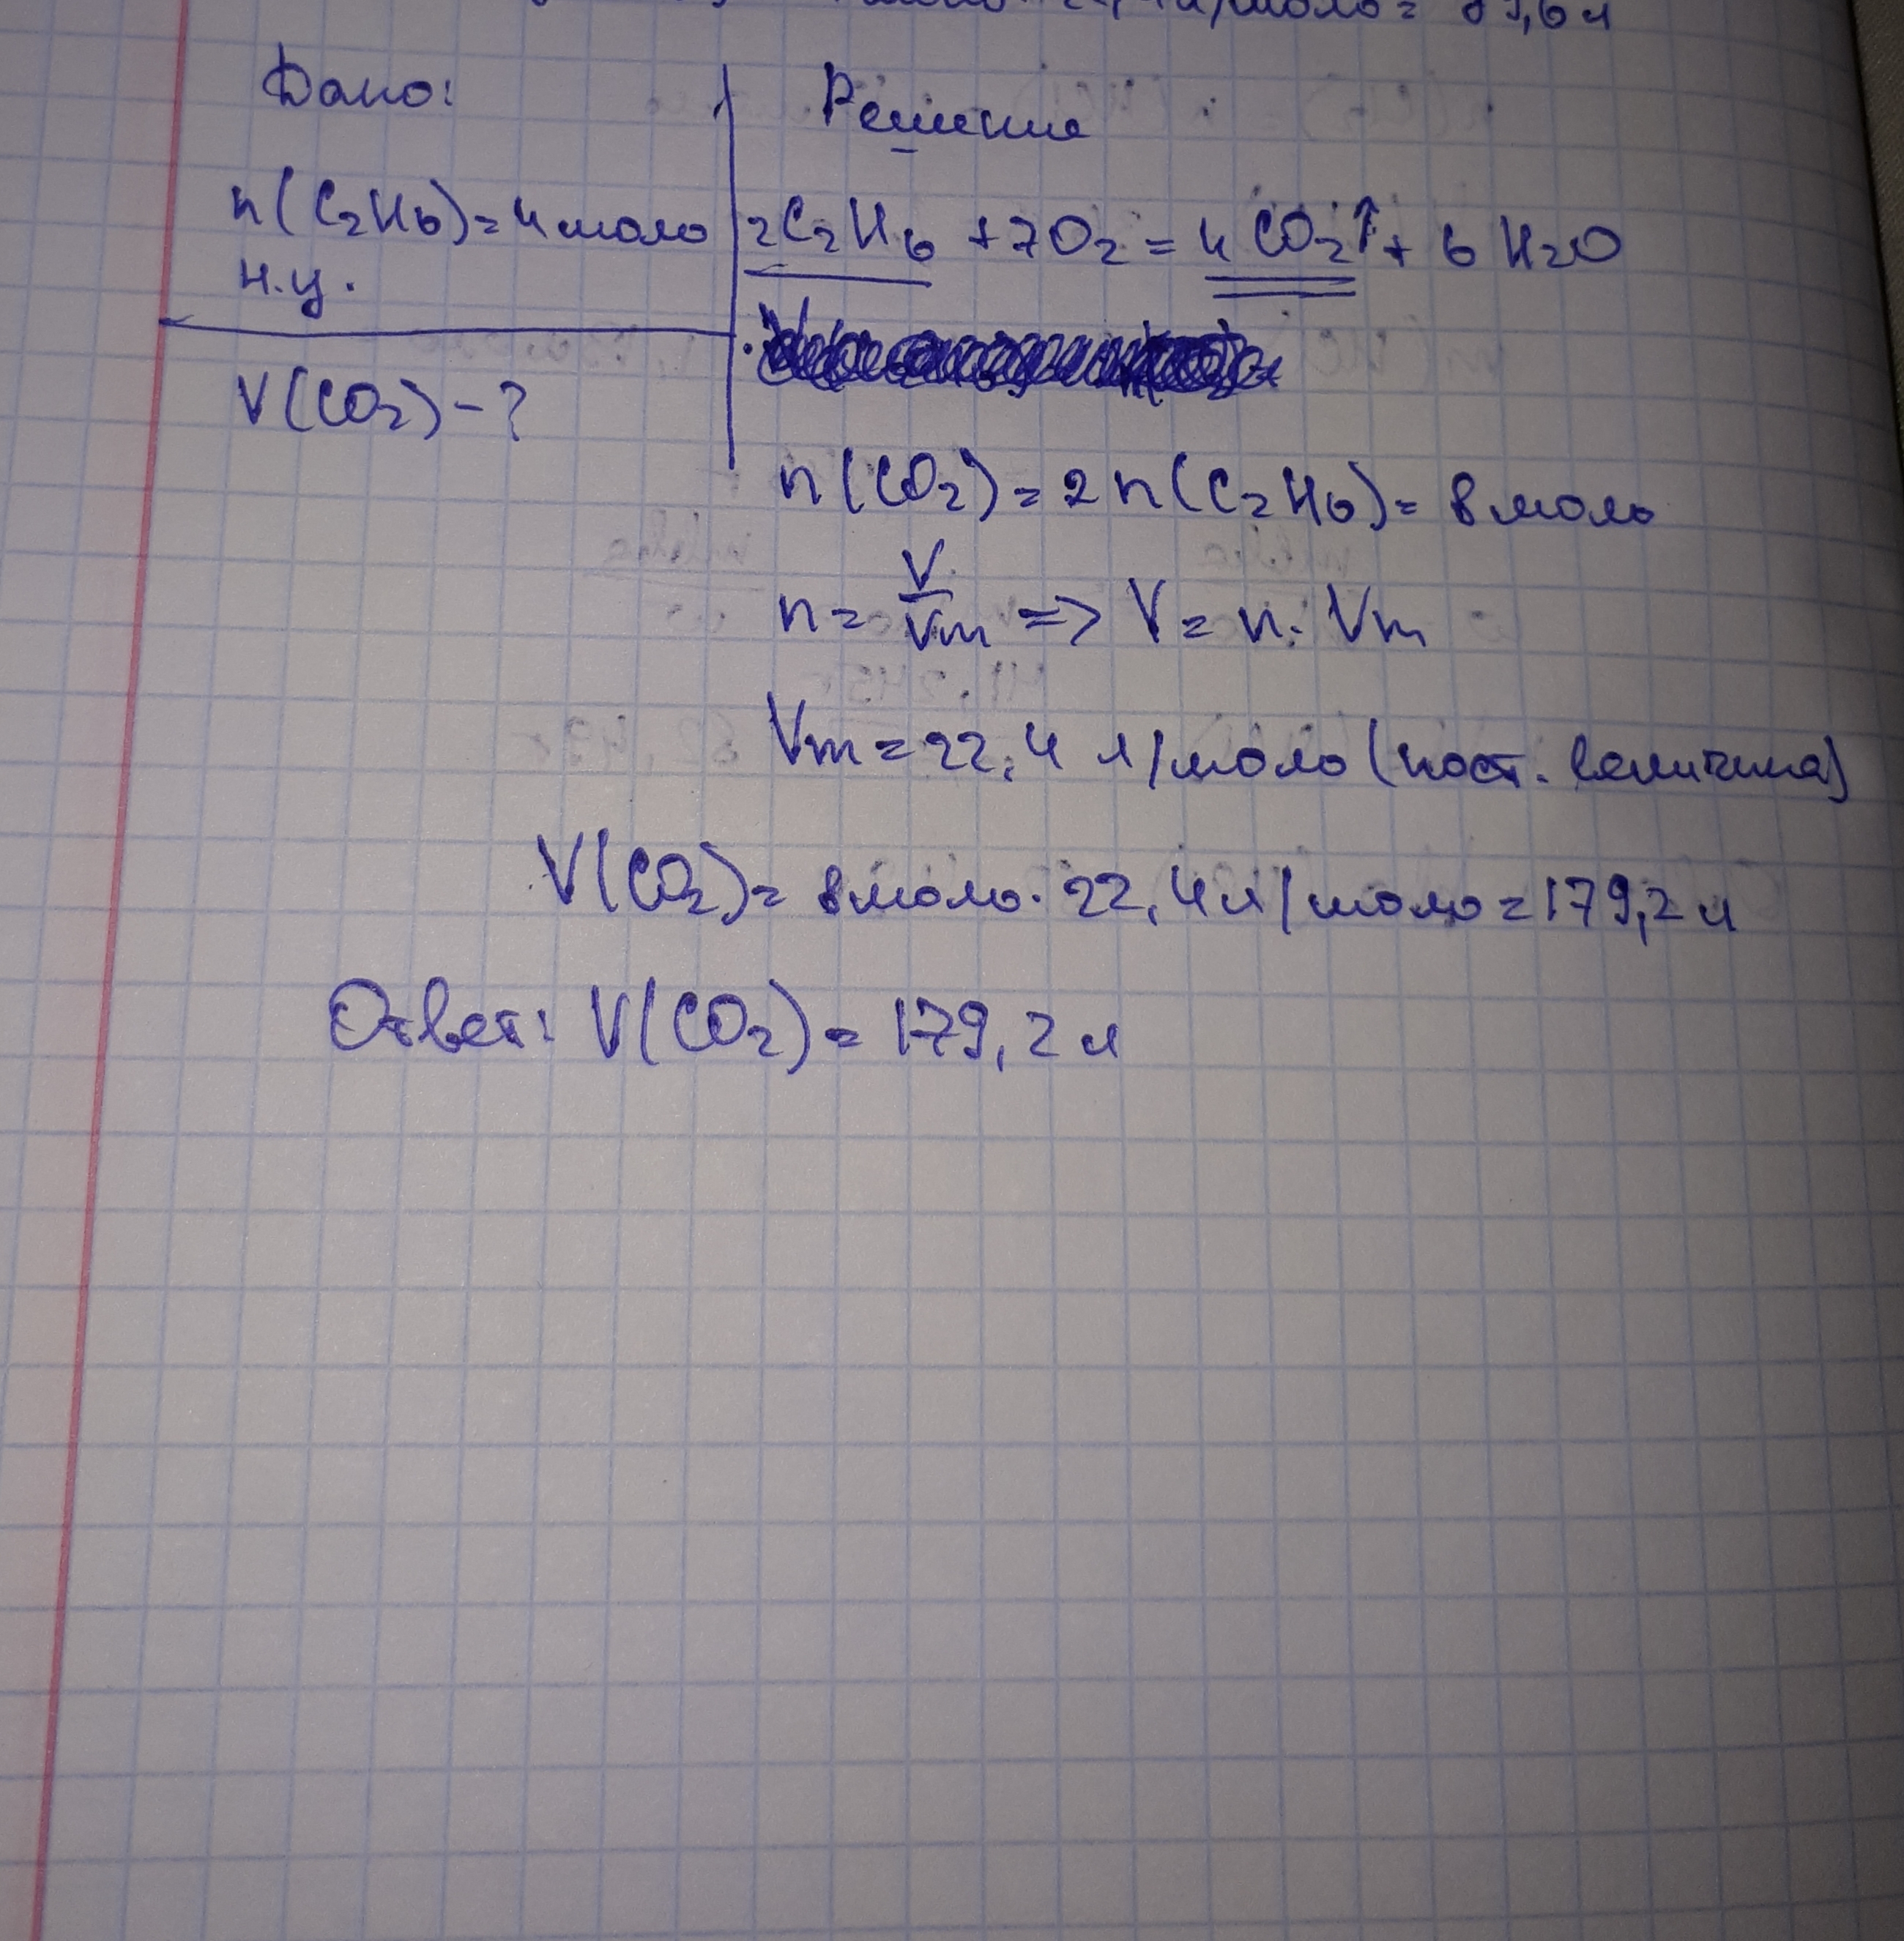 моль = 89,6 л
Дано:
Решение
n(C₂H₆) = 4 моль
н.у.
2C₂H₆ + 7O₂ = 4CO₂↑ + 6H₂O
V(CO₂) - ?
n(CO₂) = 2n(C₂H₆) = 8 моль
n = V/Vm => V = n · Vm
Vm = 22,4 л/моль (пост. величина)
V(CO₂) = 8 моль · 22,4 л/моль = 179,2 л
Ответ: V(CO₂) = 179,2 л